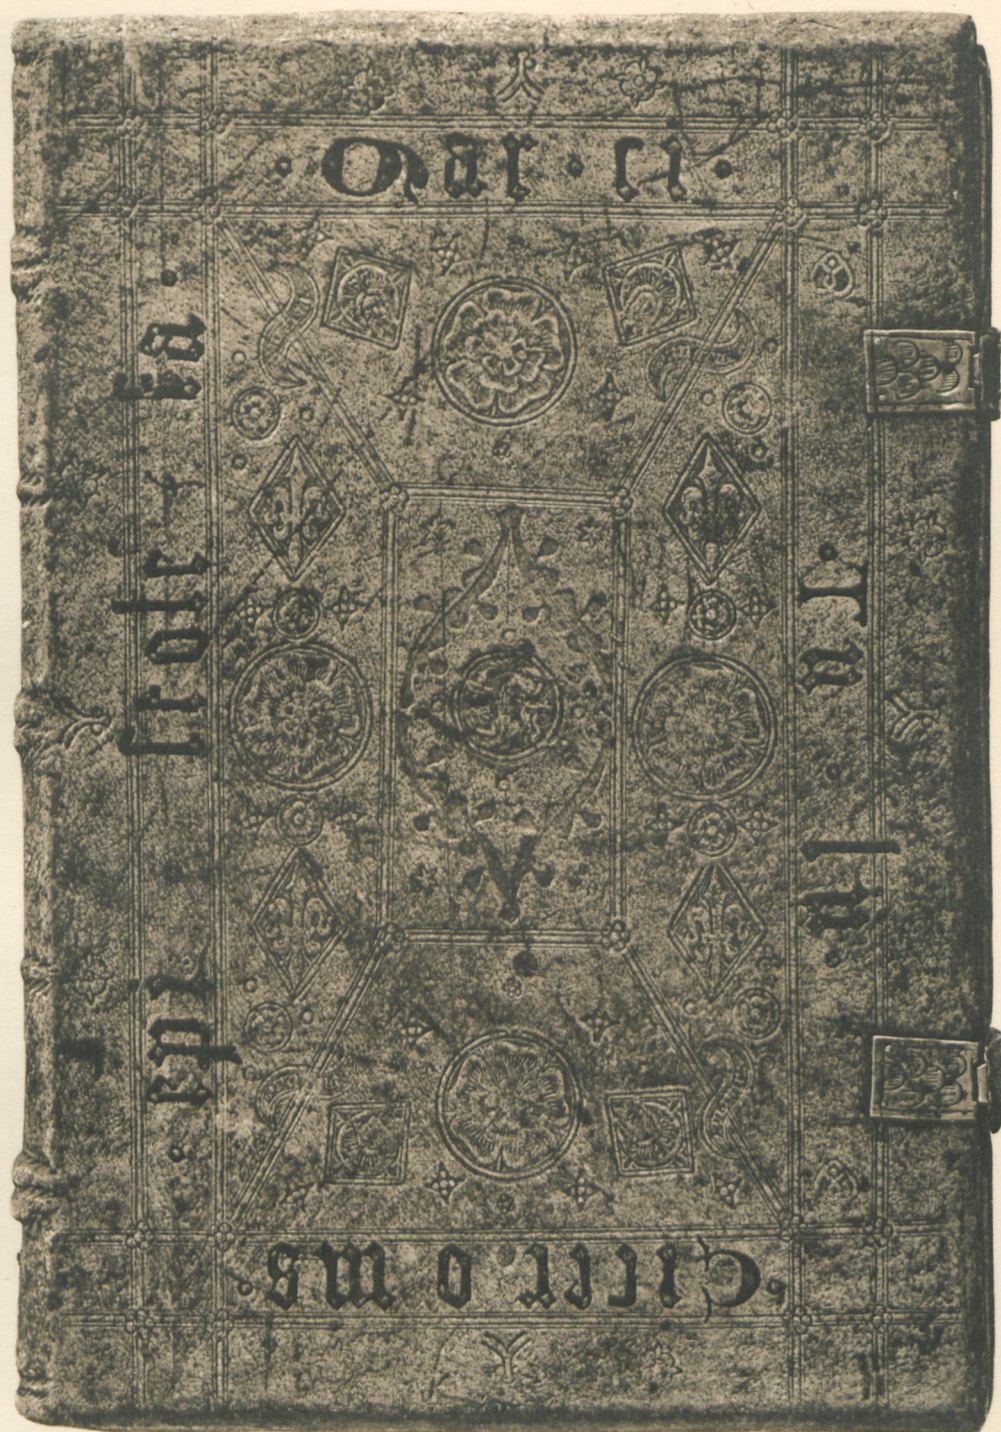 ·Mar·ci·
Tu li
Cicer o nis
epi ſtole fa